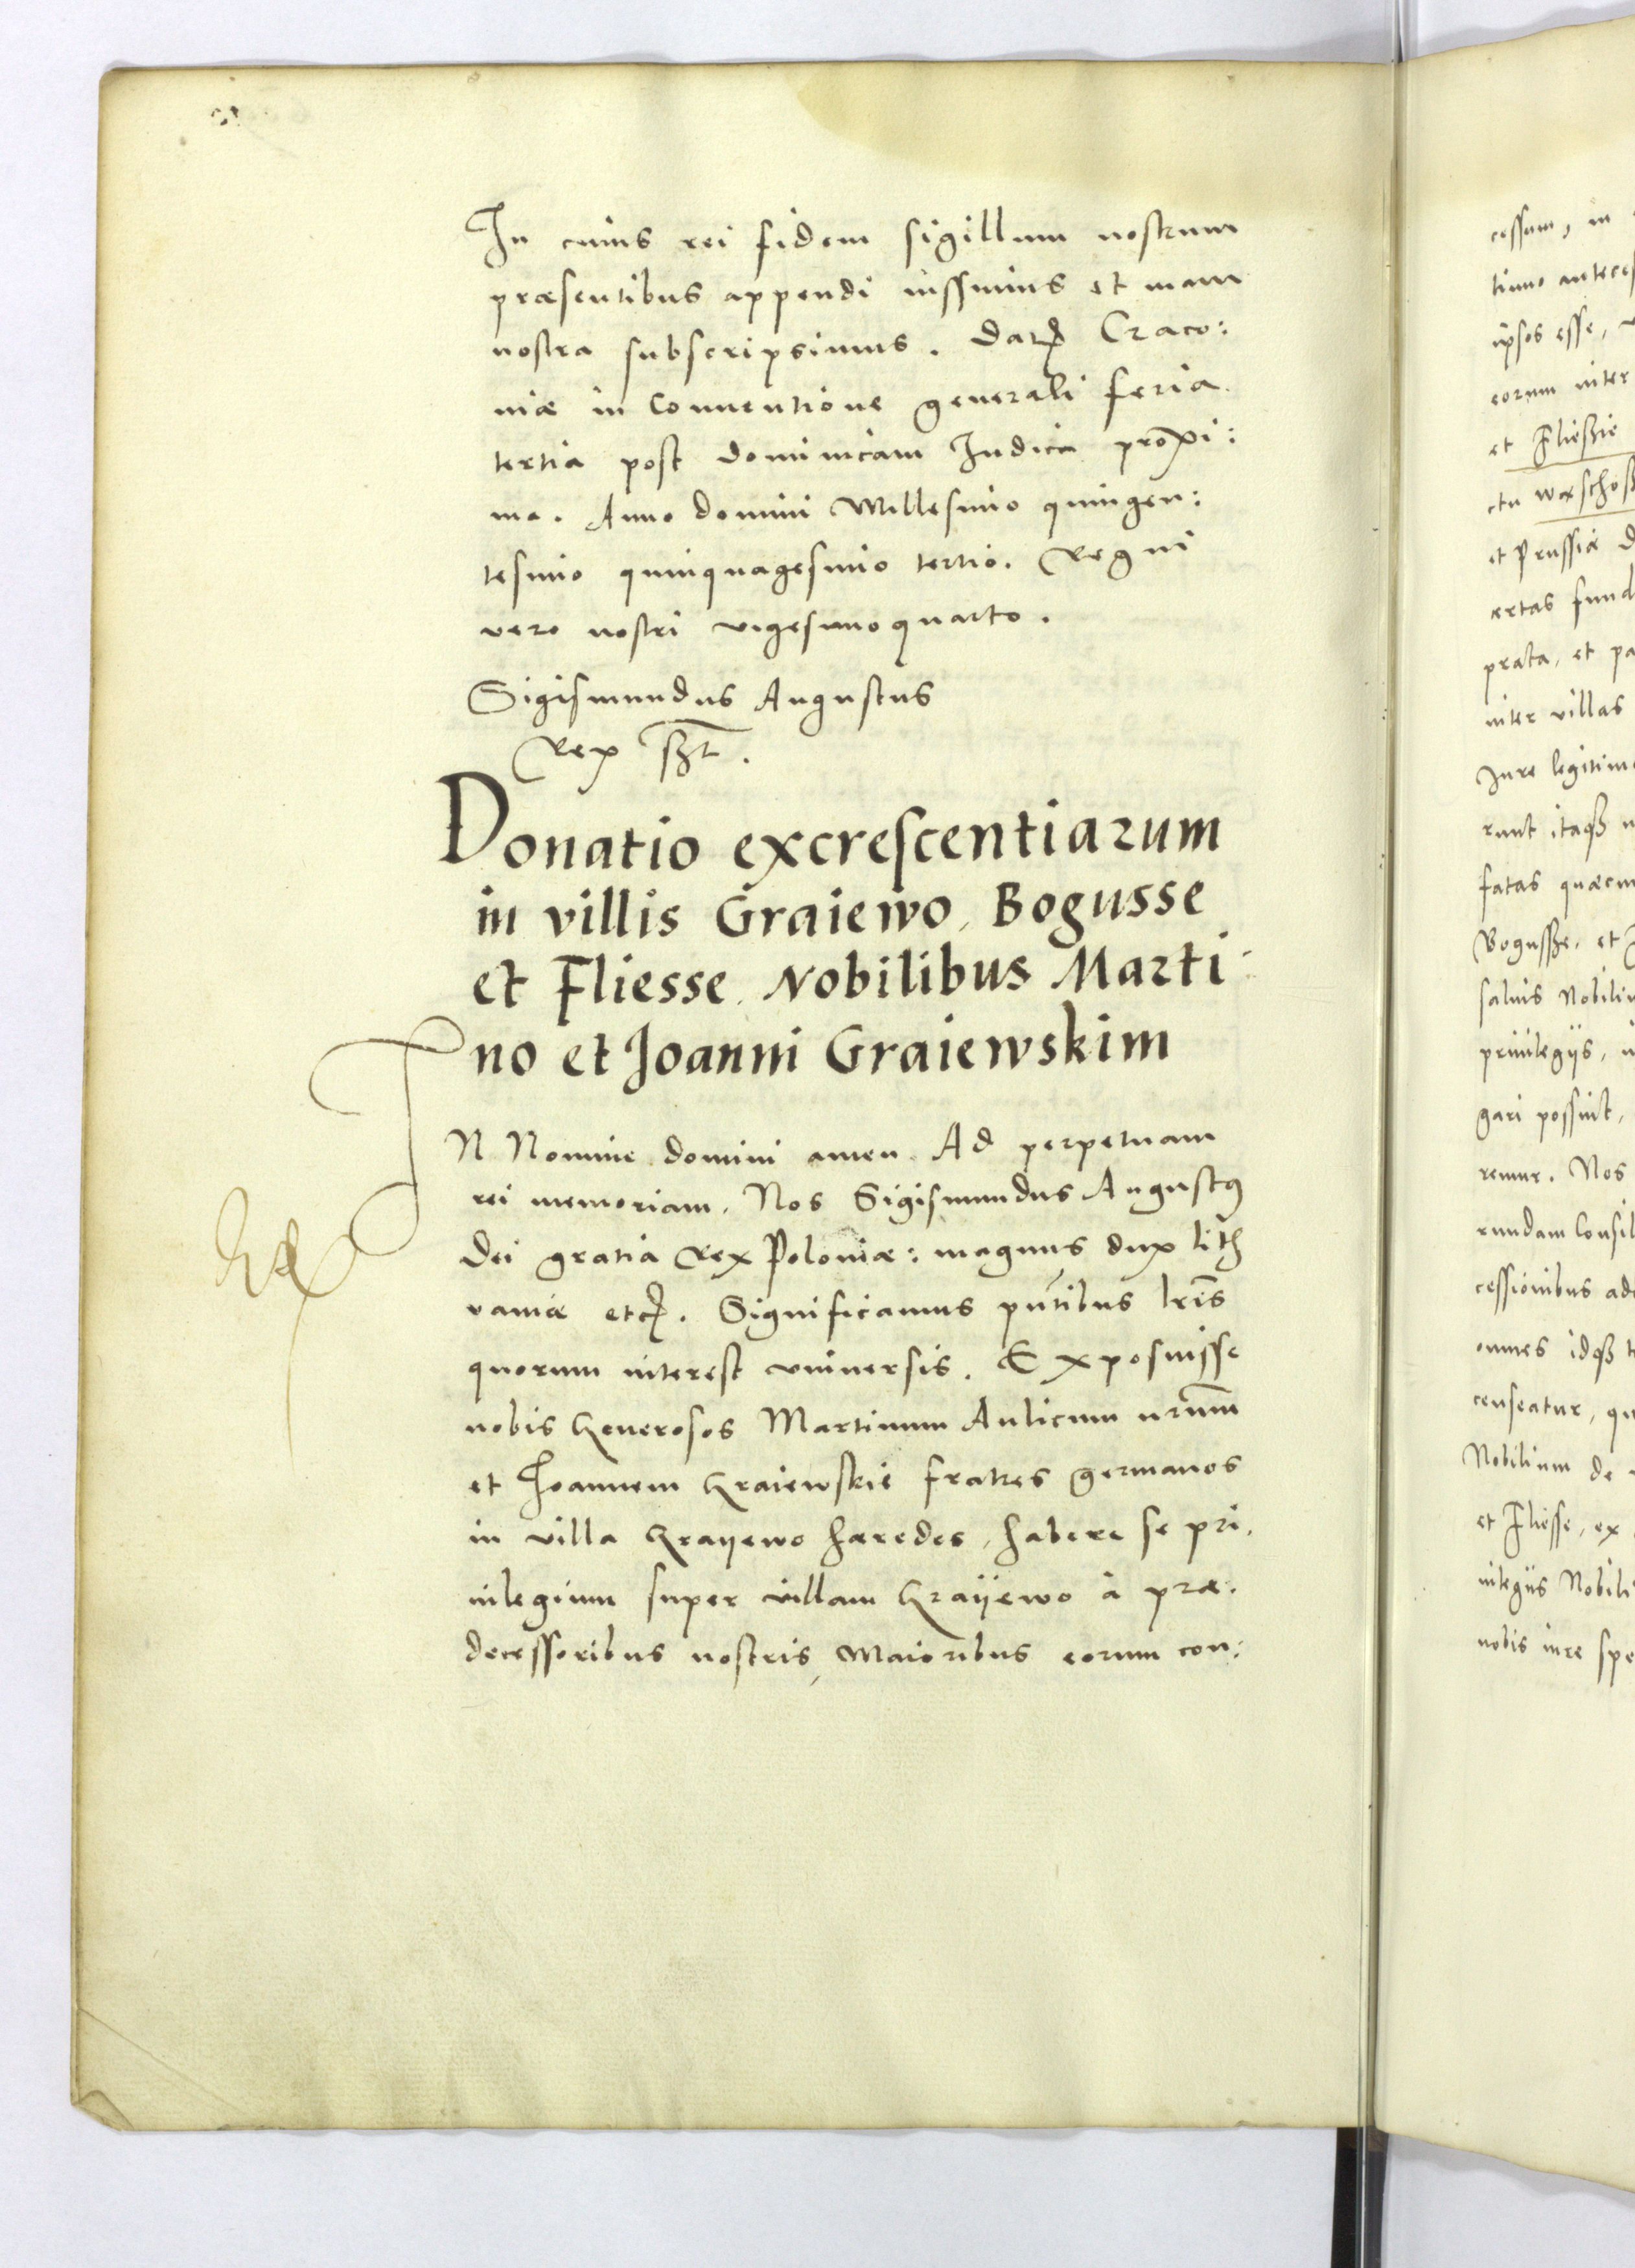 In cuius rei fidem sigillum nostrum
præsentibus appendi iussimus et manu
nostra subscripsimus. Datę Craco:
niæ in Conuentione generali feria
tertia post dominicam Iudica proxi:
ma. Anno domini Millesimo quingen:
tesimo quinquagesimo tertio. Regni
vero nostri vigesimoquarto.
Sigismundus Augustus
Rex sßt.
Donatio excrescentiarum
in villis Graiewo, Bogusse
et Fliesse, Nobilibus Marti:
no et Joanni Graiewskim
IN Nomine domini amen. Ad perpetuam
rei memoriam. Nos Sigismundus Augustꝰ
Dei gratia Rex Poloniæ: magnus dux lith
vaniæ etc. Significamus pñtibus lrīs
quorum interest vniuersis. Exposuisse
nobis Generosos Martinum Aulicum nr̃um
et Joannem Graiewskie fratres germanos
in villa Grayewo hæredes, habere se pri,
uilegium super villam Graÿewo à præ.
decessoribus nostris, Maioribus eorum con:
cessum, in
timo anteces
ipsos esse,
eorum inter
et Flieszie
ctu wąschosz
et Prussiæ D
ertas fund
prata, et pa
inter villas
Jure legitimo
runt itaqꝫ
fatas quæcu
Bogussze, et
saluis Nobiliu
priuilegijs,
gari possint,
remur. Nos
rundam Consil
cessionibus ad
omnes idqꝫ
censeatur, qu
Nobilium de
et Fliesse, ex
uilegiis Nobili
nobis iure spe